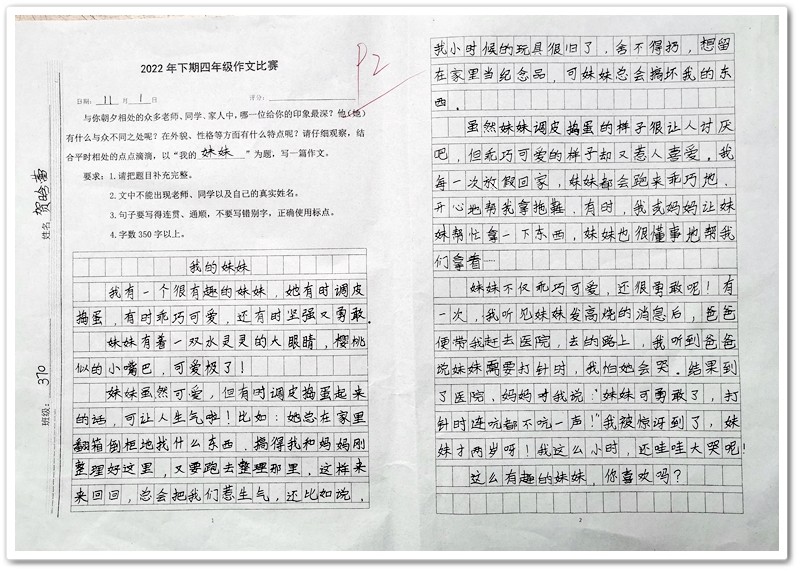 2022年下期四年级作文比赛
P2
日期:11月1日 评分:
与你朝夕相处的众多老师、同学、家人中,哪一位给你的印象最深?他(她)
有什么与众不同之处呢?在外貌、性格等方面有什么特点呢?请仔细观察,结
合平时相处的点点滴滴,以“我的妹妹”为题,写一篇作文。
要求:1.请把题目补充完整。
2.文中不能出现老师、同学以及自己的真实姓名。
3.句子要写得连贯、通顺,不要写错别字,正确使用标点。
4.字数350字以上。
姓名 贺晗蕾
班级: 370
我的妹妹
我有一个很有趣的妹妹,她有时调皮
捣蛋,有时乖巧可爱,还有时坚强又勇敢。
妹妹有着一双水灵灵的大眼睛,樱桃
似的小嘴巴,可爱极了!
妹妹虽然可爱,但有时调皮捣蛋起来
的话,可让人生气啦!比如:她总在家里
翻箱倒柜地找什么东西,搞得我和妈妈刚
整理好这里,又要跑去整理那里,这样来
来回回,总会把我们惹生气,还比如说,
1
我小时候的玩具很旧了,舍不得扔,想留
在家里当纪念品,可妹妹总会搞坏我的东
西。
虽然妹妹调皮捣蛋的样子很让人讨厌
吧,但乖巧可爱的样子却又惹人喜爱。我
每一次放假回家,妹妹都会跑来乖巧地、
开心地帮我拿拖鞋。有时,我或妈妈让妹
妹帮忙拿一下东西,妹妹也很懂事地帮我
们拿着……
妹妹不仅乖巧可爱,还很勇敢呢!有
一次,我听见妹妹发高烧的消息后,爸爸
便带我赶去医院,去的路上,我听到爸爸
说妹妹需要打针时,我怕她会哭。结果到
了医院,妈妈对我说:“妹妹可勇敢了,打
针时连吭都不吭一声!”我被惊讶到了,妹
妹才两岁呀!我这么小时,还哇哇大哭呢!
这么有趣的妹妹,你喜欢吗?
2